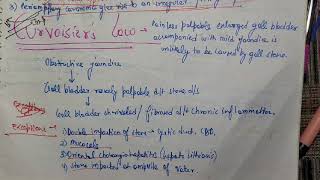 3) Periampullary carcinoma give rise to an irregular
Curvoisiers Law → Painless palpable enlarged gall bladder
accompanied with mild jaundice is
unlikely to be caused by gall stone.
Obstructive jaundice
↓
Gall bladder rarely palpable d/t stone d/s
↓
Gall bladder shrinked / fibrosed d/t chronic inflammation.
Exceptions → 1) Double impaction of stone → Cystic duct, CBD,
2) Mucocele
3) Oriental cholangiohepatitis (hepato lithiasis)
4) Stone impacted at ampulla of Vater.